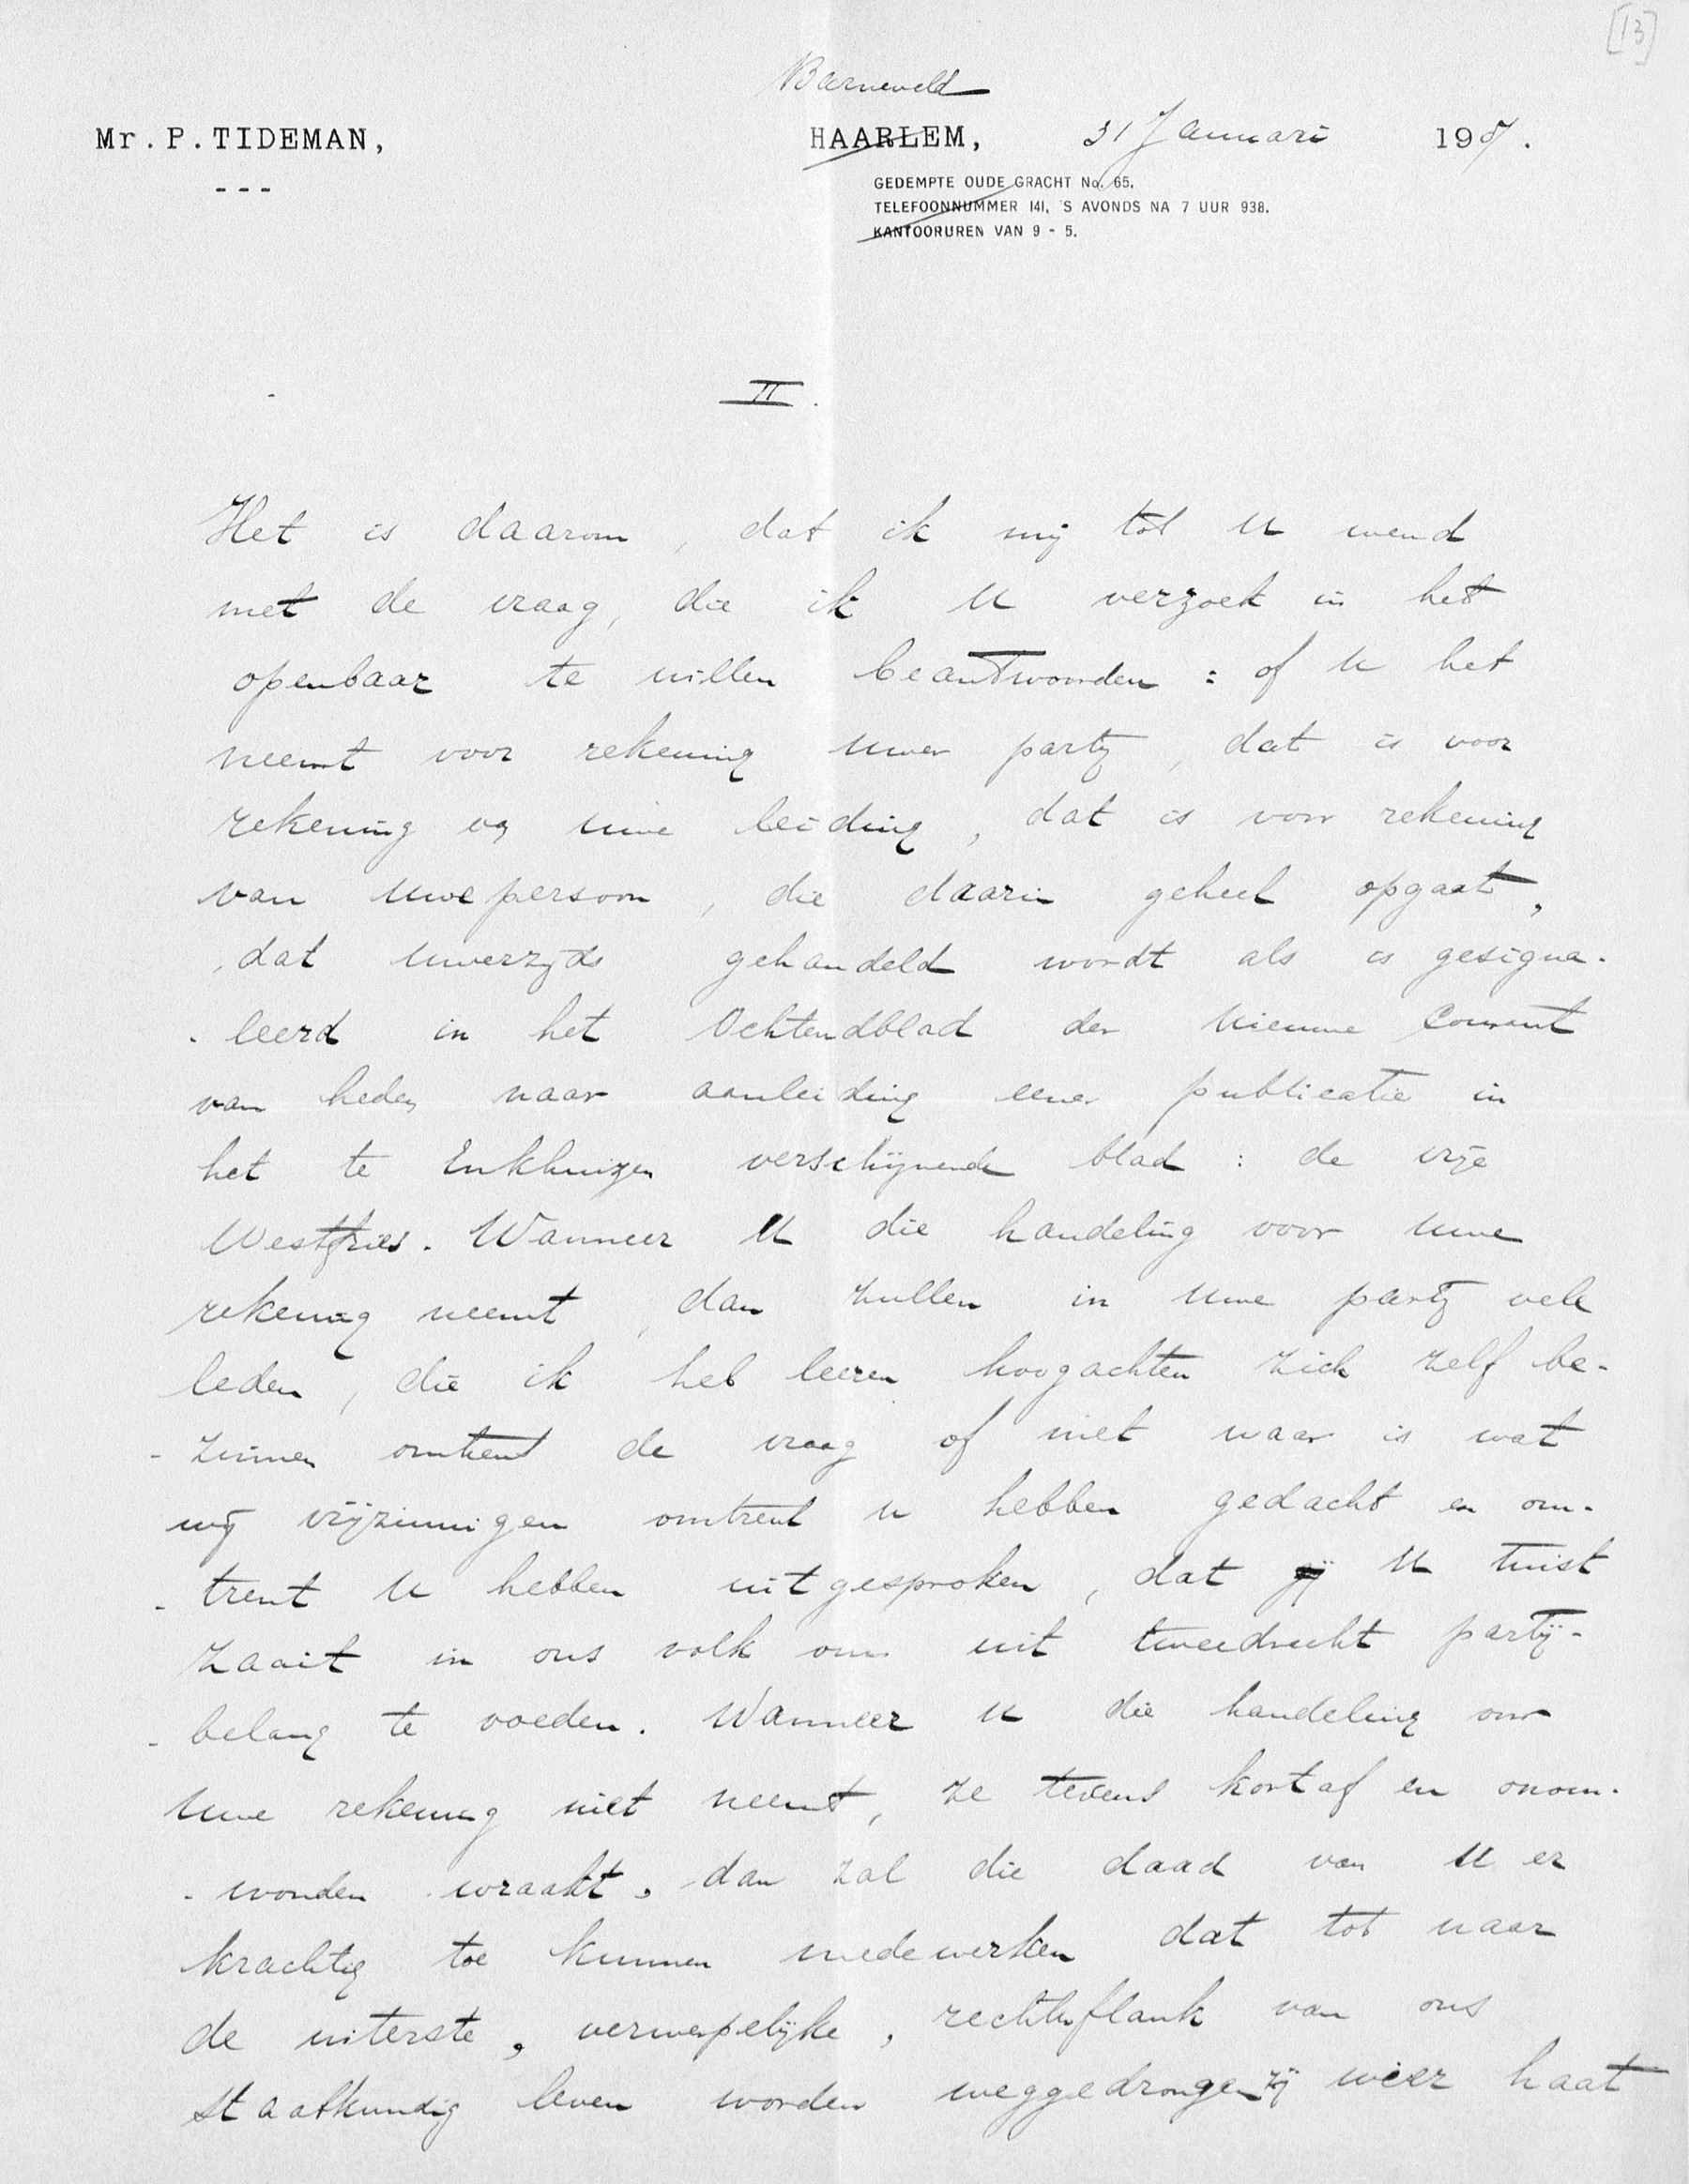 [13]
Barneveld
Mr. P. TIDEMAN, HAARLEM, 31 Januari 190
---
GEDEMPTE OUDE GRACHT No. 65.
TELEFOONNUMMER 141, 'S AVONDS NA 7 UUR 938.
KANTOORUREN VAN 9 - 5.
II.
Het is daarom, dat ik mij tot U wend
met de vraag, die ik U verzoek in het
openbaar te willen beantwoorden: of U het
neemt voor rekening uwer partij, dat is voor
rekening van uwe leiding, dat is voor rekening
van uwe persoon, die daarin geheel opgaat,
dat uwerzijds gehandeld wordt als is gesigna-
-leerd in het Ochtendblad der Nieuwe Courant
van heden naar aanleiding eener publicatie in
het te Enkhuizen verschijnende blad: de vrije
Westfries. Wanneer U die handeling voor uwe
rekening neemt, dan zullen in Uwe partij vele
leden, die ik heb leeren hoogachten zich zelf be-
-zinnen omtrent de vraag of niet waar is wat
wij vrijzinnigen omtrent u hebben gedacht en om-
-trent U hebben uitgesproken, dat U twist
zaait in ons volk om uit tweedracht partij-
-belang te voeden. Wanneer U die handeling voor
Uwe rekening niet neemt, ze tevens kortaf en onom-
-wonden wraakt, dan zal die daad van U er
krachtig toe kunnen medewerken dat tot naar
de uiterste, verwerpelijke, rechterflank van ons
staatkundig leven worden weggedrongen zij wier haat